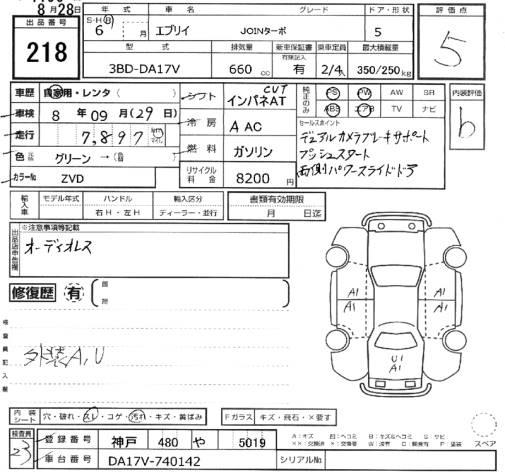 8月28日
出品番号
218
年式
車名
グレード
ドア・形状
S・H・R
6 月
エブリイ
JOINターボ
5
型式
排気量
新車保証書
有無記入
乗車定員
最大積載量
3BD-DA17V
660 cc
有
2/4人
350/250kg
評価点
5
車歴
自家用・レンタ( )
車検
8年09月(29日)
走行
7,897 km マイル
色
グリーン→( )
カラーNo
ZVD
シフト
CVT
インパネAT
冷房
A AC
燃料
ガソリン
リサイクル料金
8200円
純正のみ
PS PW AW SR
ABS エアB TV ナビ
セールスポイント
デュアルカメラブレーキサポート
プッシュスタート
両側パワースライドドア
内装評価
b
輸入車
モデル年式
ハンドル
右H・左H
輸入区分
ディーラー・並行
書類有効期限
月 日迄
出品店申告欄
※注意事項等記載
オーディオレス
修復歴
有
箇所
検査員記入欄
外装A,U
A1 A1
A1 A1
U1
A1
内装シート
穴・破れ・スレ・コゲ・汚れ・キズ・黄ばみ
Fガラス
キズ・飛石・X要す
検査員
23
登録番号
神戸 480 や 5019
車台番号
DA17V-740142
シリアルNo
スペア